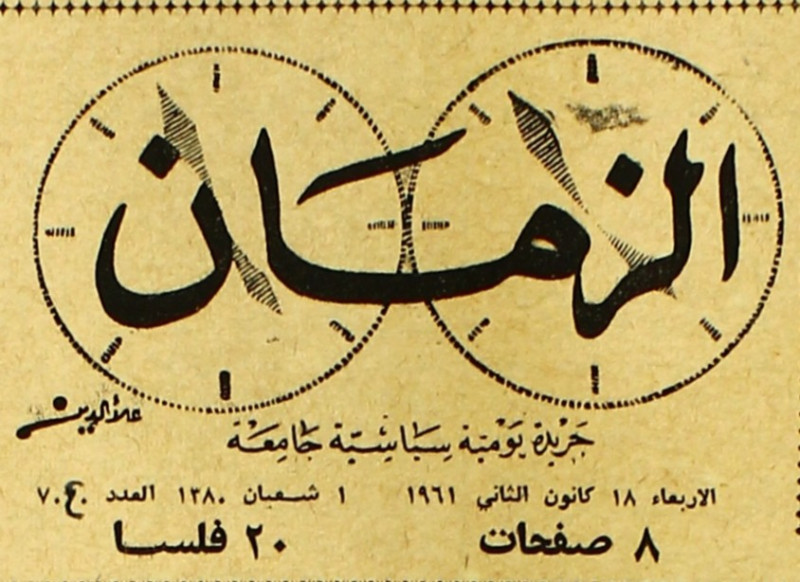 الزمان
علاءالدين
جَريْدة يَوْميَّة سِيَاسِيَّة جَامِعَة
الاربعاء ١٨ كانون الثاني ١٩٦١ ١ شعبان ١٣٨٠ العدد ٧٠٤٠
٨ صفحات ٢٠ فلسا